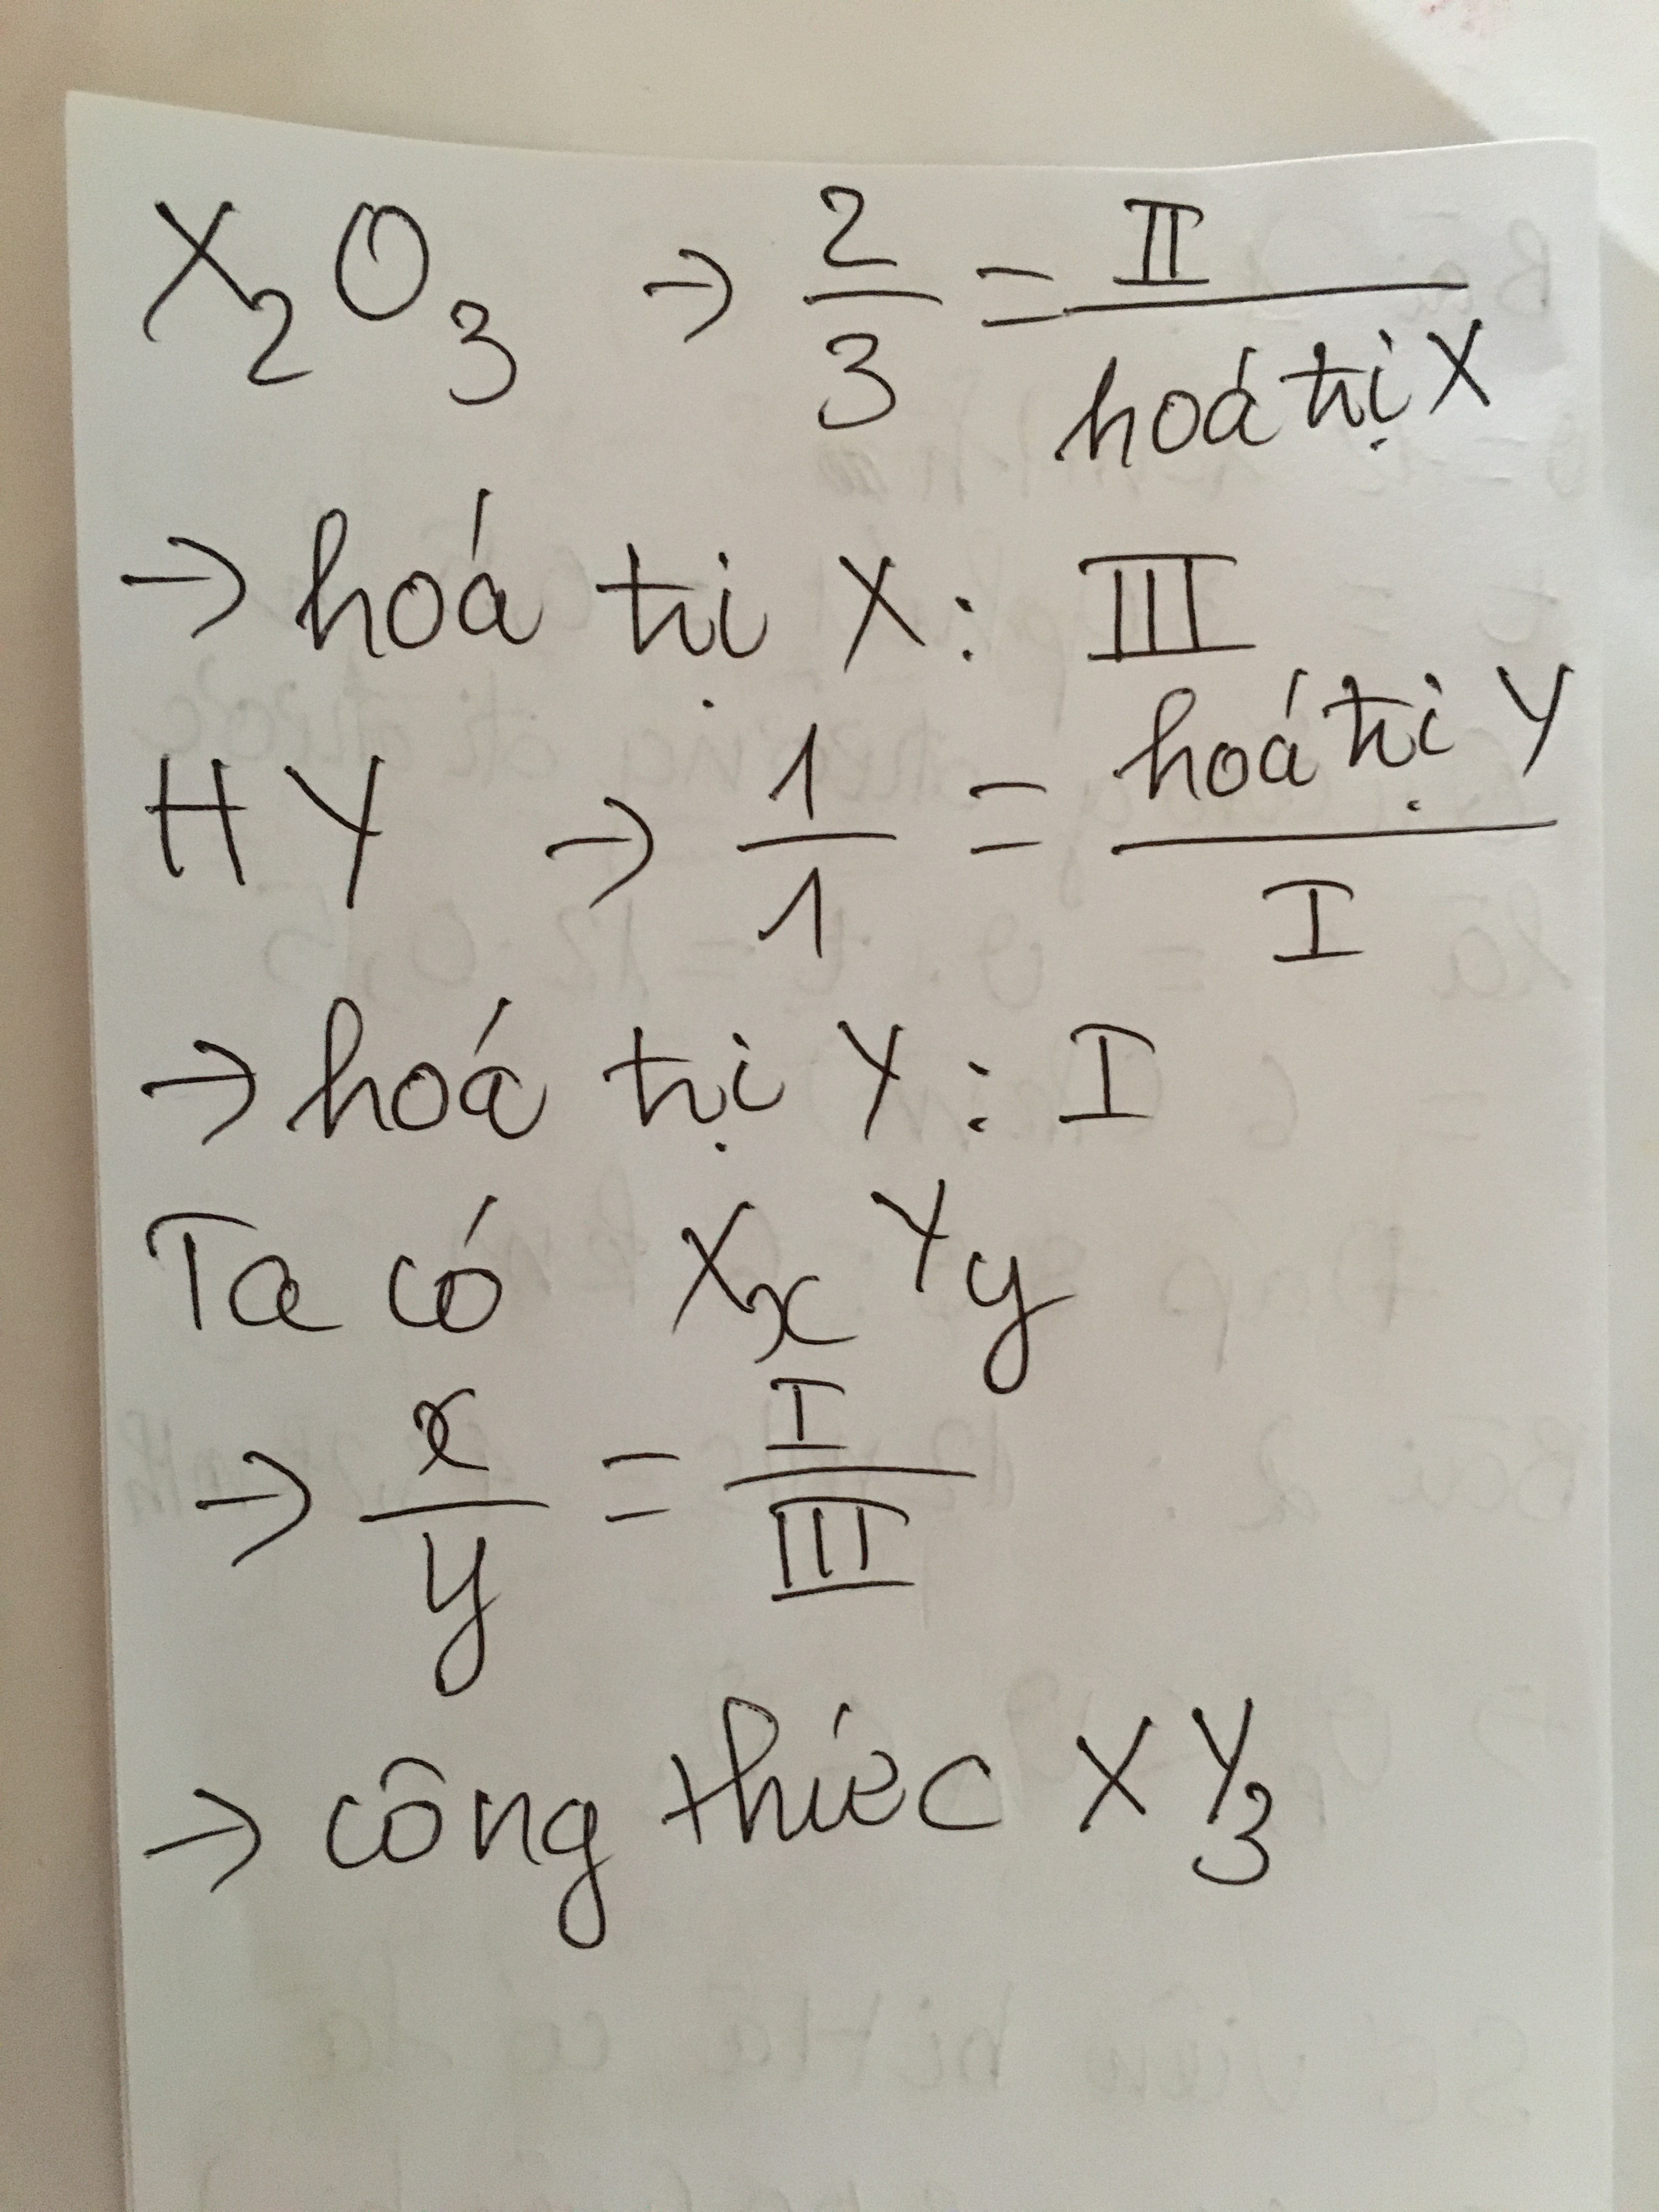 X₂O₃ → 2/3 = II/hoá trị X
→ hoá trị X : III
HY → 1/1 = hoá trị Y/I
→ hoá trị Y : I
Ta có XₓYy
→ x/y = I/III
→ công thức XY₃